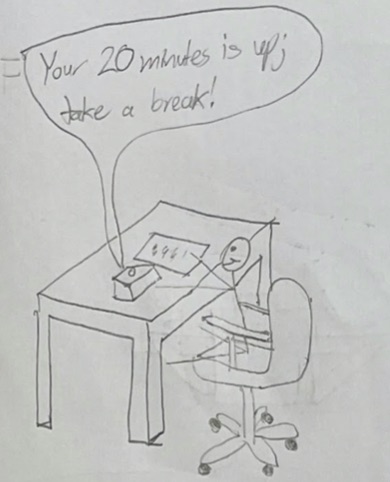 Your 20 minutes is up;
take a break!